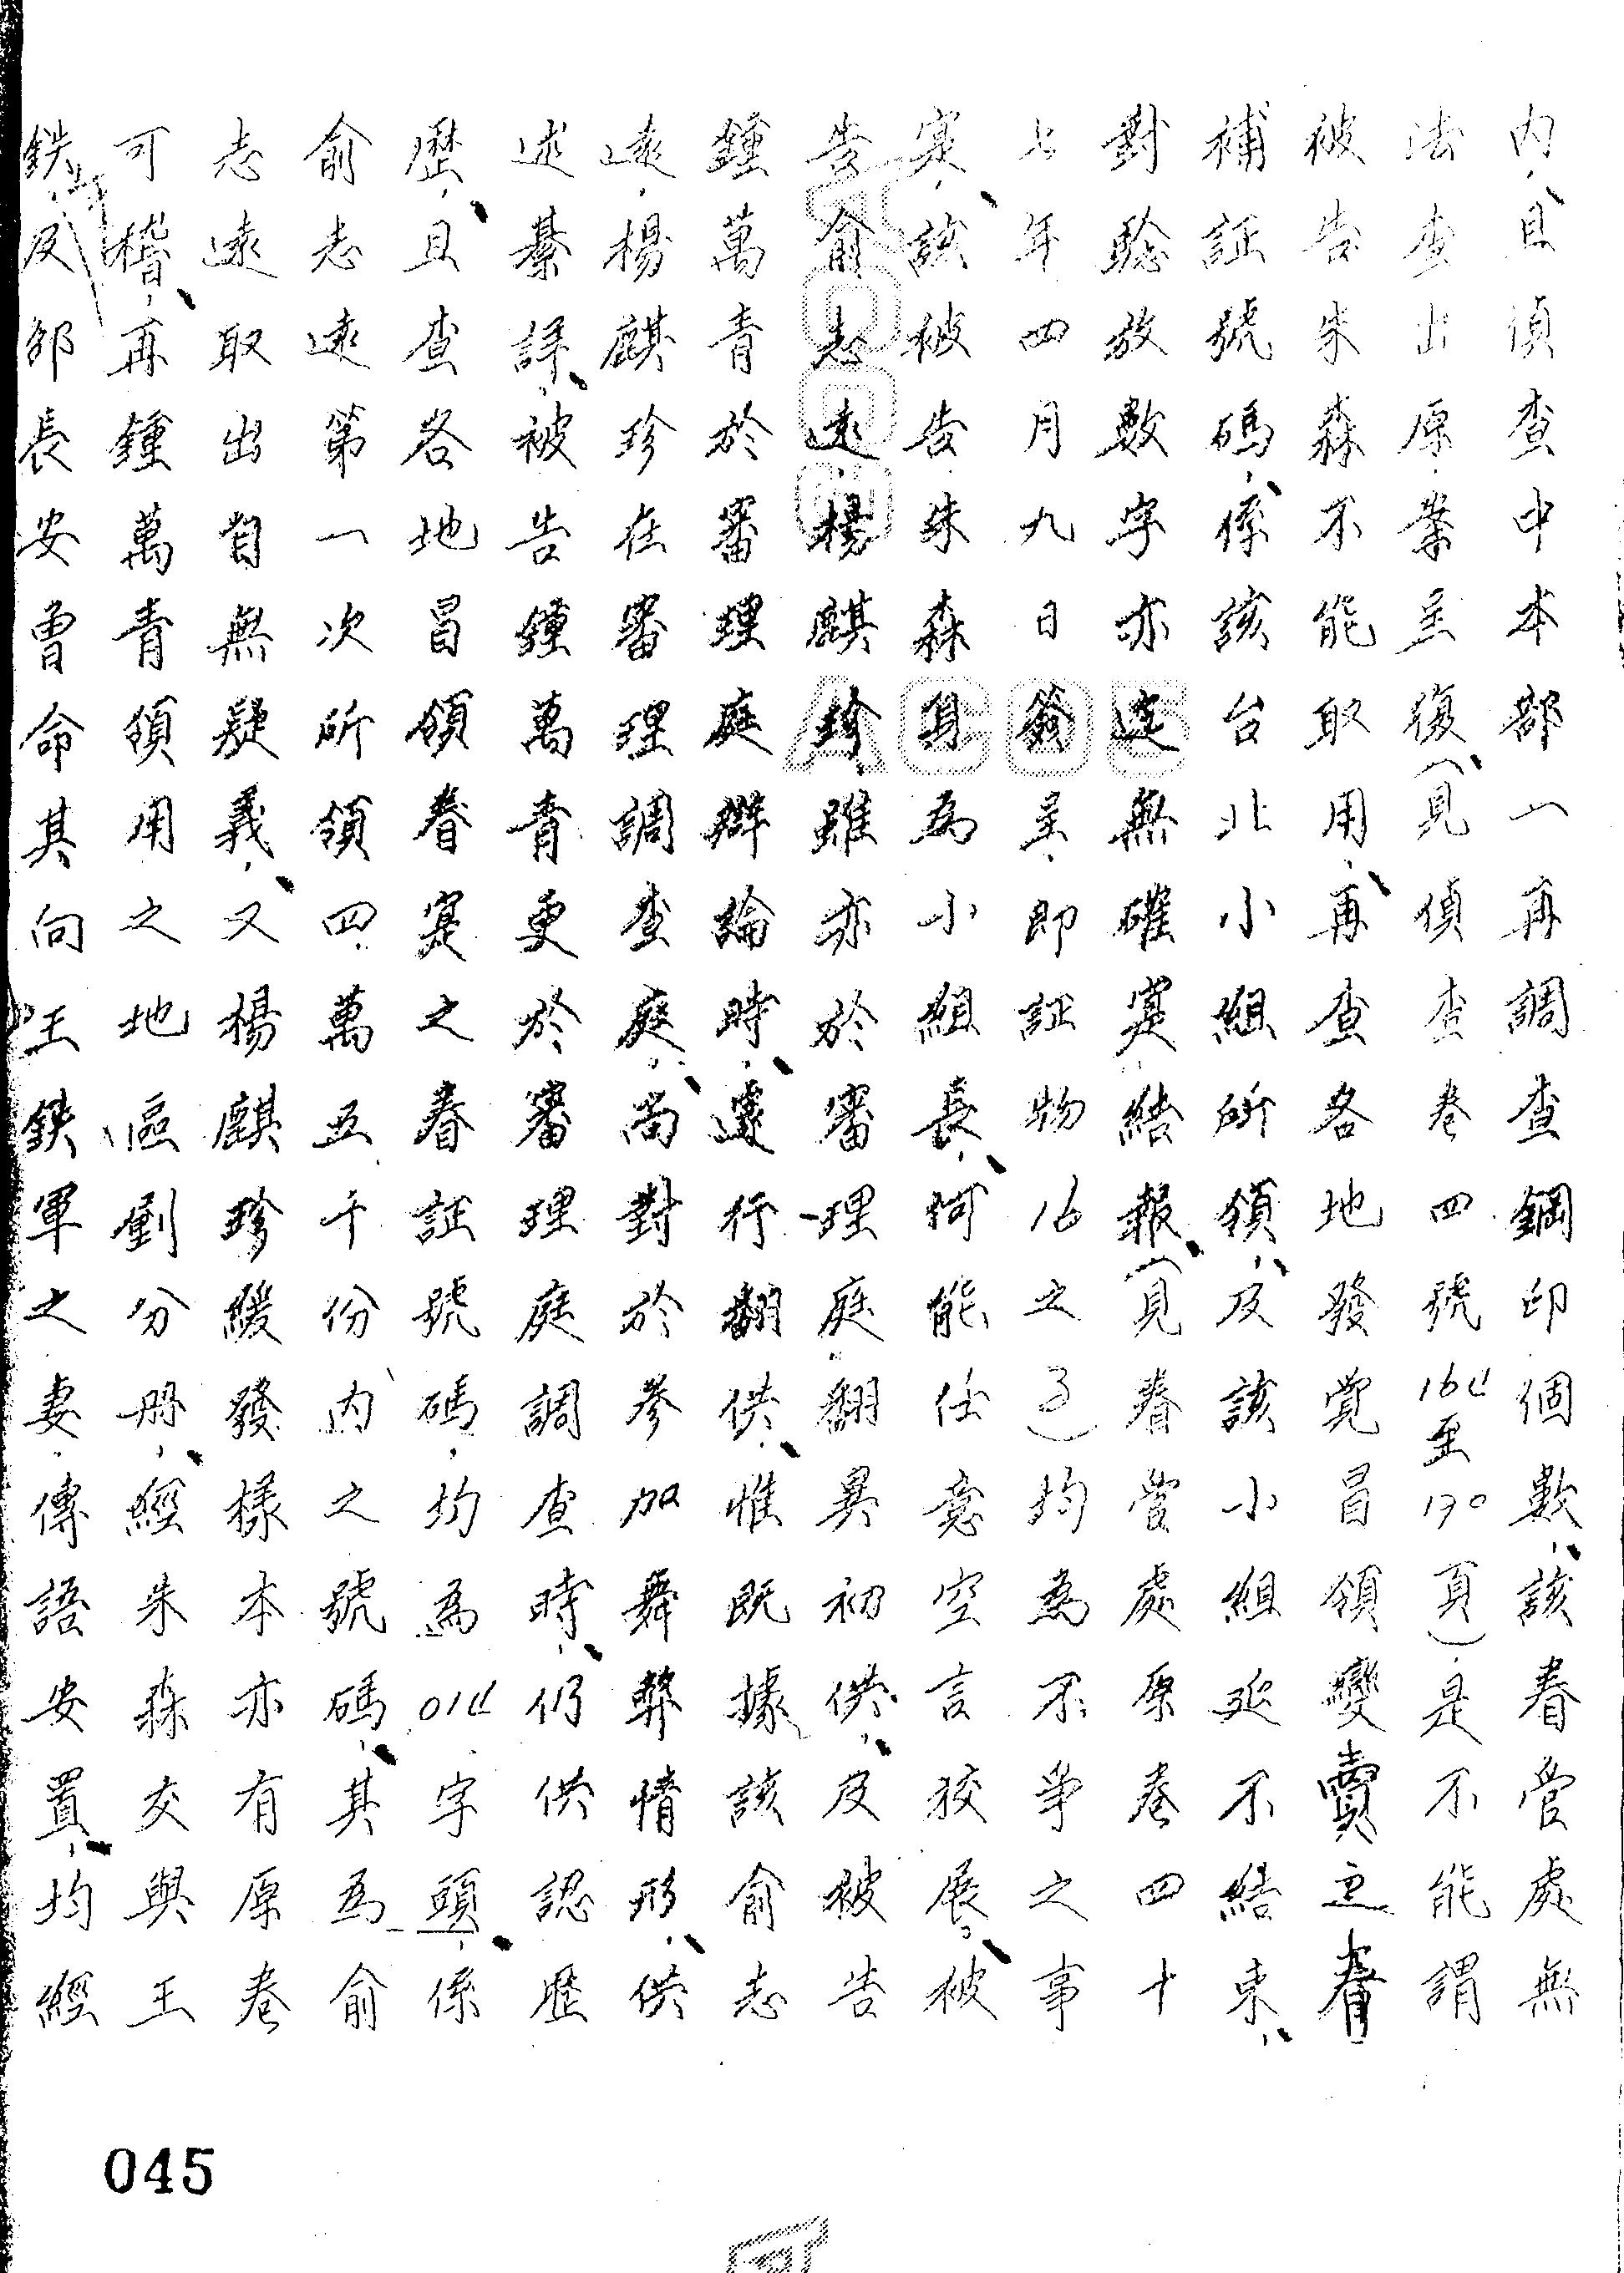 內，且偵查中本部一再調查鋼印個數，該眷管處無
法查出原業主復（見偵查卷四號164至170頁）是不能謂
被告朱森不能取用，再查各地發覺冒領變賣之眷
補証號碼，係該台北小組所領，及該小組延不結束，
對驗放數字亦迄無確實結報（見眷管處原卷四十
七年四月九日簽呈，即証物16之3）均為不爭之事
実，該被告朱森身為小組長，何能任意空言狡展。被
告俞志遠，楊麒珍，雖亦於審理庭翻異初供，及被告
鍾萬青於審理庭辯論時，遽行翻供，惟既據該俞志
遠，楊麒珍在審理調查庭，尚對於參加舞弊情形，供
述綦詳，被告鍾萬青更於審理庭調查時，仍供認歷
歷，且查各地冒領眷實之眷証號碼，均為014字頭，係
俞志遠第一次所領四萬五千份內之號碼，其為俞
志遠取出自無疑義，又楊麒珍緩發樣本亦有原卷
可稽，再鍾萬青領用之地區劃分冊，經朱森交與王
鉄軍及邵長安曾命其向王鉄軍之妻，傳語安置，均經
045
ACOS